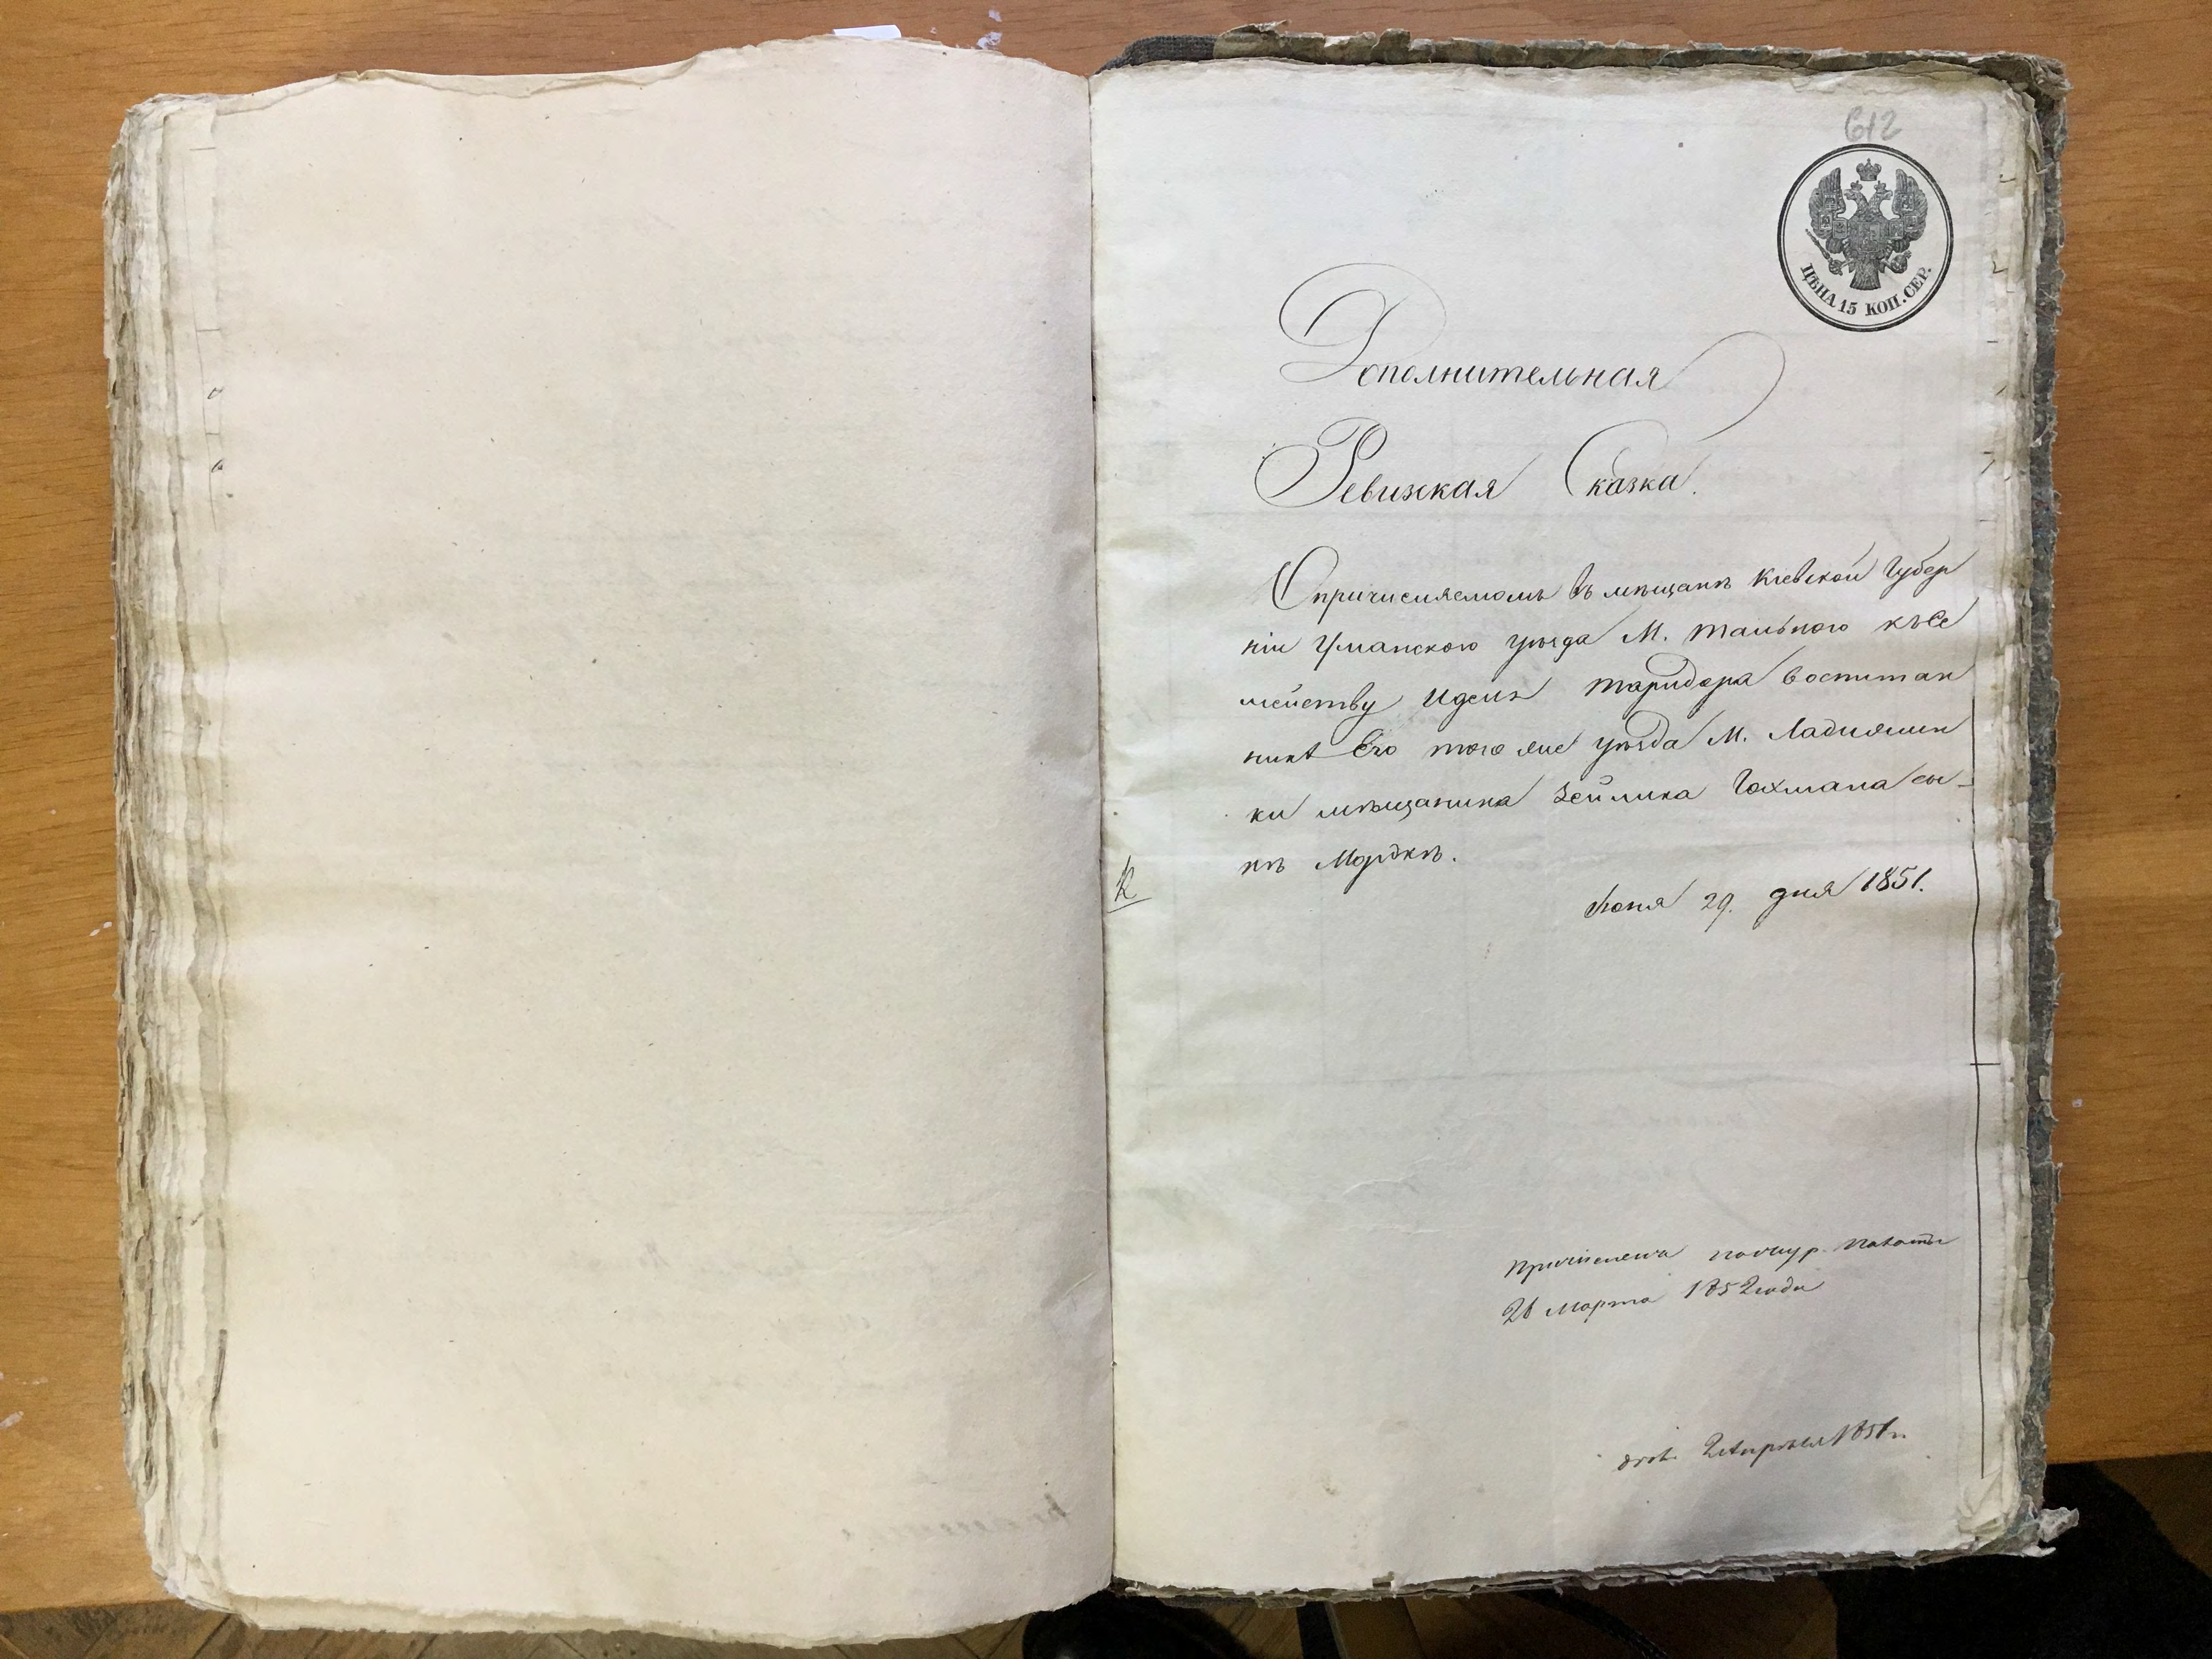 612
ЦѢНА 15 КОП. СЕР.
Дополнительная
Ревизкая Сказка.
О причисляемомъ въ мѣщанѣ Кіевской Губер
ніи Уманского уѣзда М. Тального къ се
мейству Идели Таридора воспитан
никѣ Его того же уѣзда М. Ладижин
ки мѣщанина Зейлика Гохмана сы-
нѣ Мордкѣ.
К
Июня 29. дня 1851.
Причислена по журн. Палаты
26 Марта 1852 года
Апрѣля